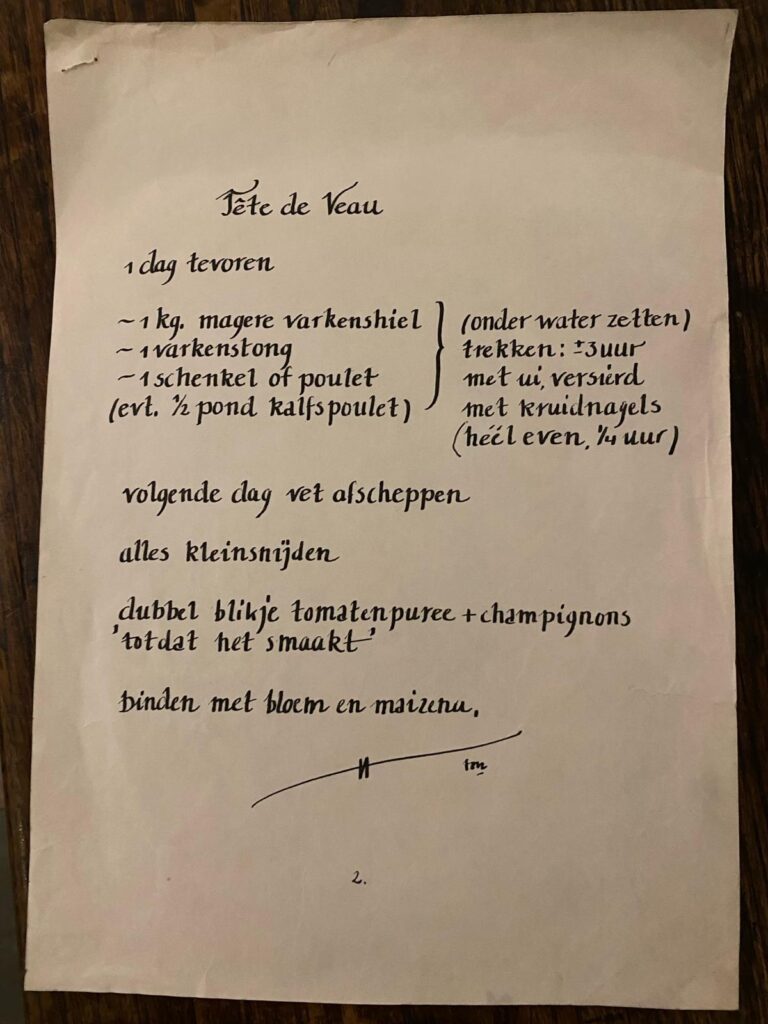 Tête de Veau
1 dag tevoren
~ 1 kg. magere varkenshiel
~ 1 varkenstong
~ 1 schenkel of poulet
(evt. ½ pond kalfspoulet)
(onder water zetten)
trekken: ±3 uur
met ui, versierd
met kruidnagels
(héél even, ¼ uur)
volgende dag vet afscheppen
alles kleinsnijden
dubbel blikje tomatenpuree + champignons
'totdat het smaakt'
binden met bloem en maizena.
tm
2.